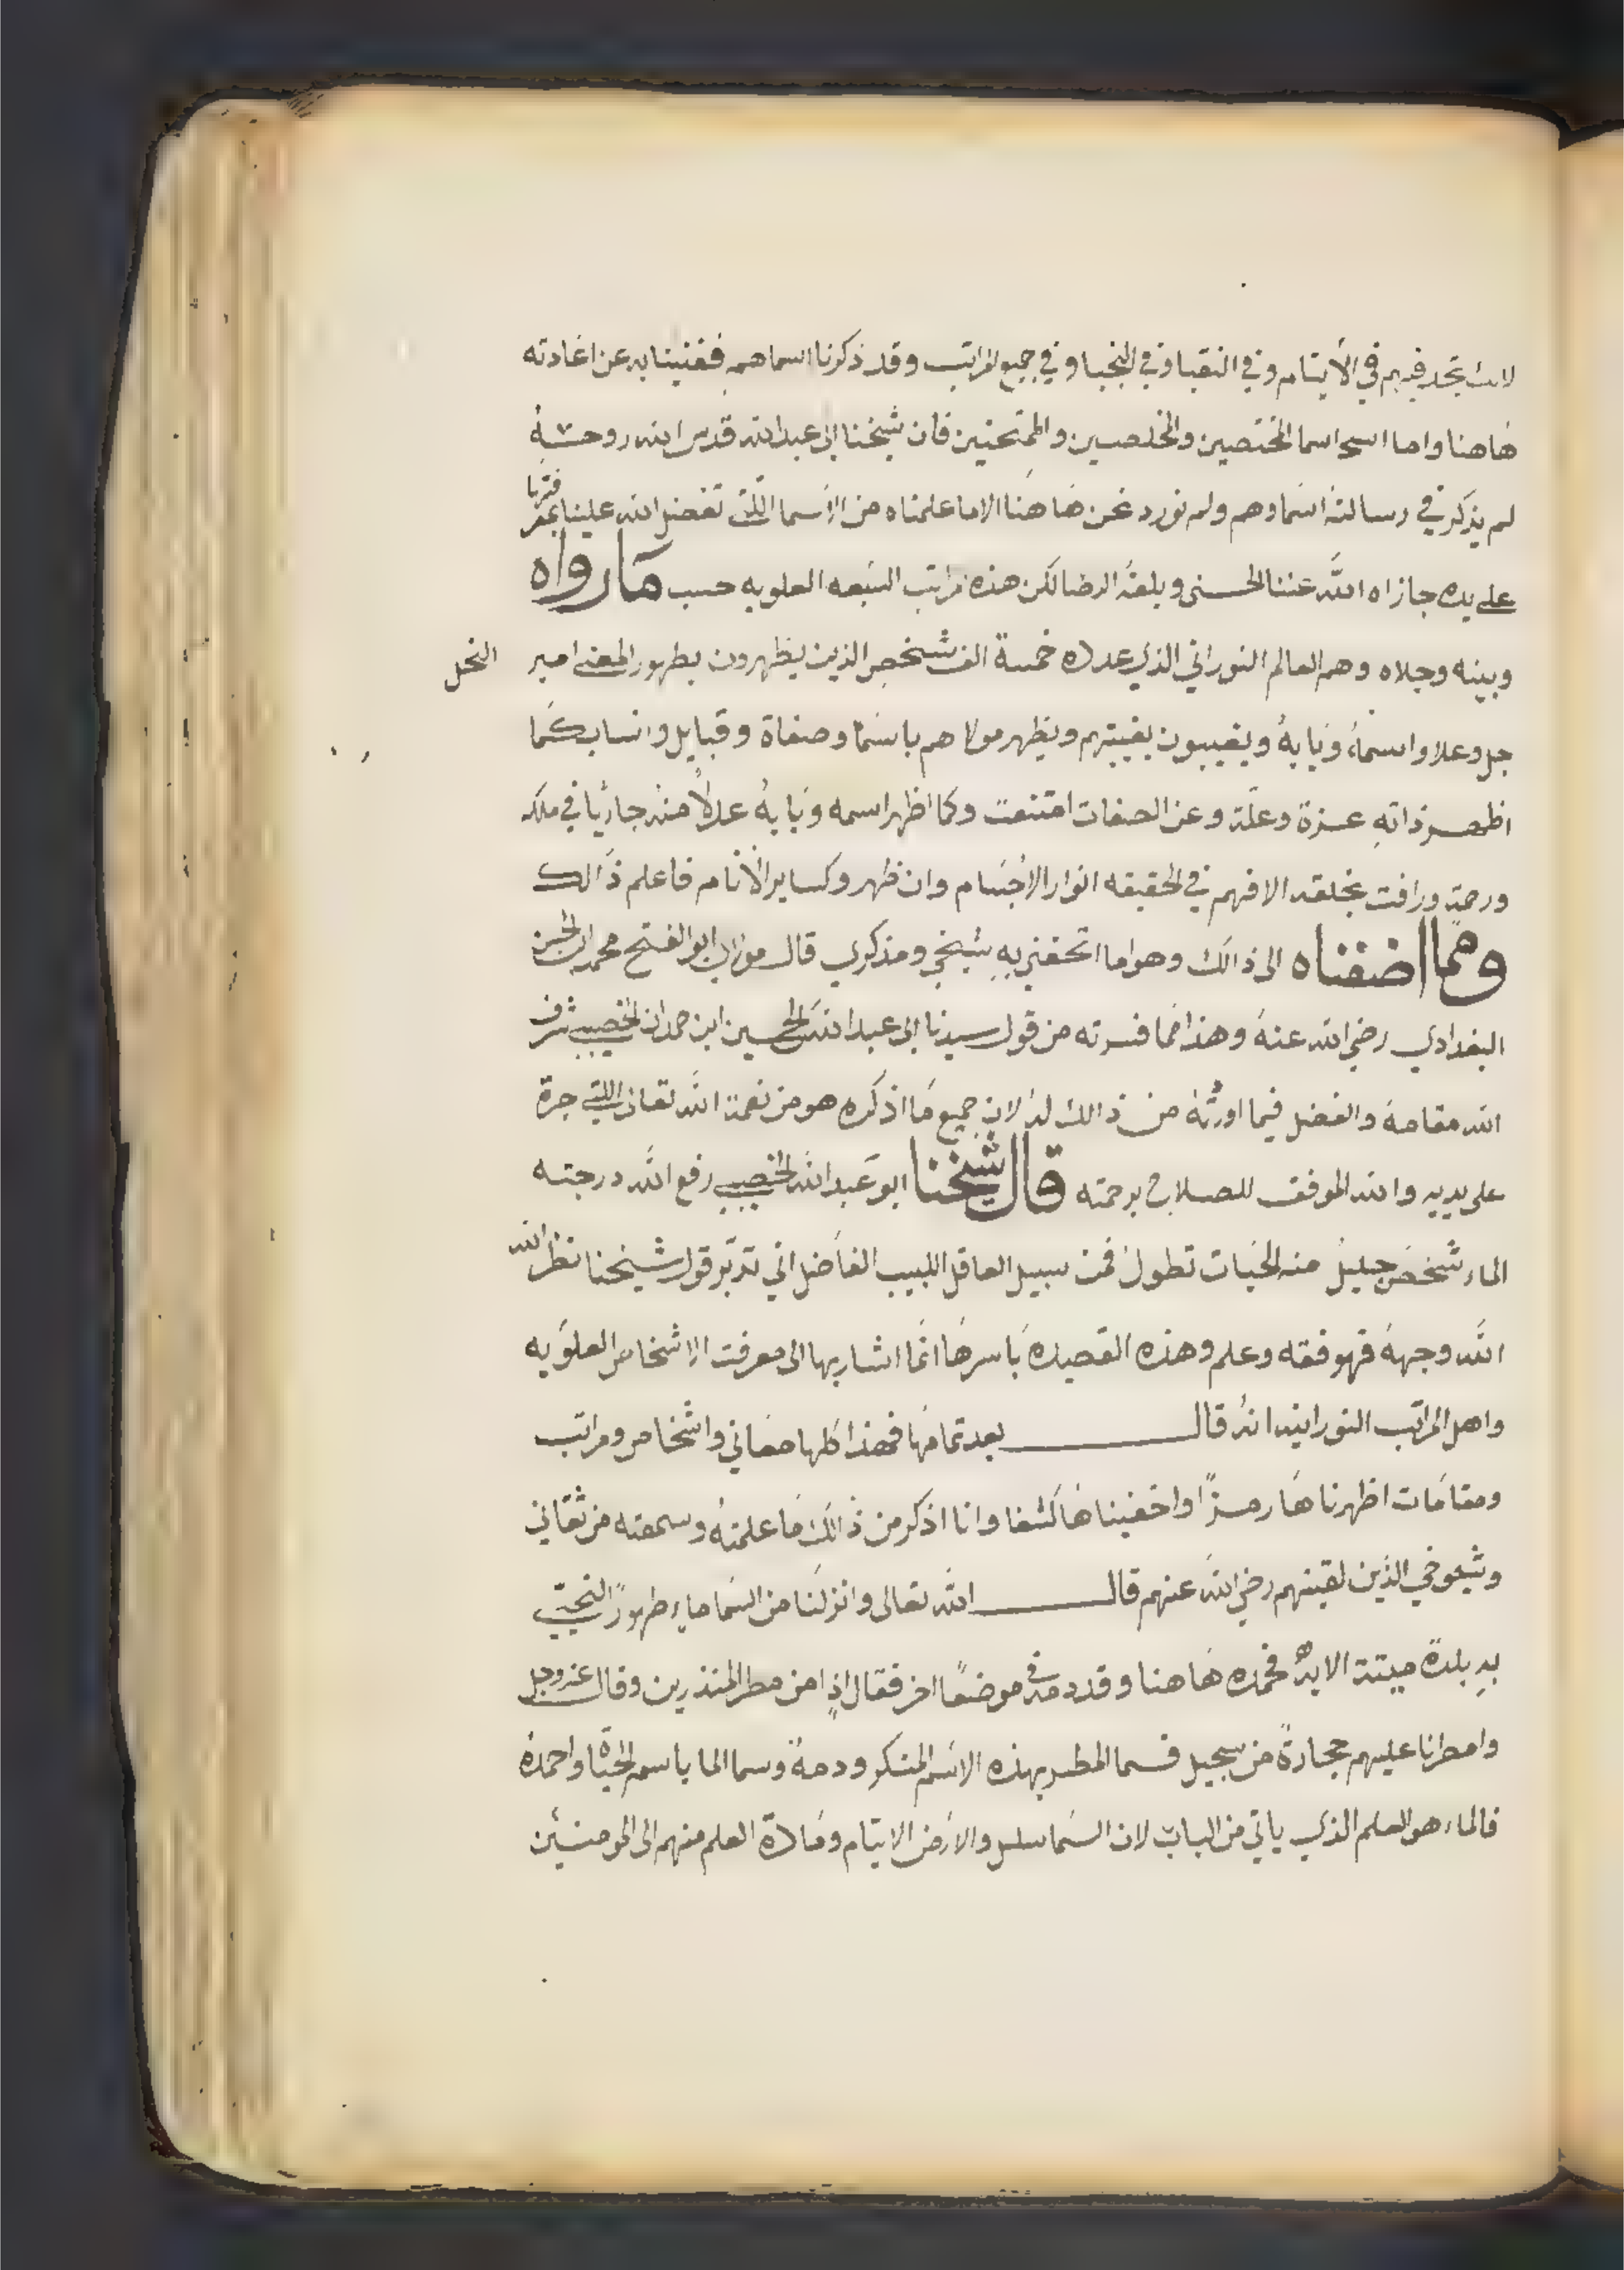 لانك تجد فيهم في الأيتام وفي النقبا وفي النجبا وفي جميع المراتب وقد ذكرنا اسماهم فغنينا به عن اعادته
هاهنا واما اسما المختصين والمخلصين والممتحنين فان شيخنا ابى عبد الله قدس الله روحه
لم يذكر في رسالته اسماوهم ولم نورد نحن هاهنا الا ما علمناه من الاسما اللتي تفضل الله علينا بمعرفتها
على يده جازاه الله عننا الحسنى وبلغه الرضا لكن هذه مراتب السبعه العلويه حسب مارواه
وبينه وجلاه وهم العالم النوراني الذي عدده خمسة الف شخص الذين يظهرون بظهور المعنى امير النحل
جل وعلا واسمه وبابه ويغيبون بغيبتهم ويظهر مولاهم باسما وصفاة وقبايل وانساب كما
اظهر ذاته عزة وعلة وعن الصفات امتنعت وكما اظهر اسمه وبابه عدلاً منه جاريا في ملكه
ورحمة ورافت بخلقه الا فهم في الحقيقه انوار الاجسام وان ظهروا كساير الانام فاعلم ذالك
ومما اضفناه الى ذالك وهو اما اتحفني به شيخي ومذكري قال مولاي ابو الفتح محمد ابن الحسن
البغدادي رضي الله عنه وهذا مما فسرته من قول سيدنا ابى عبد الله الحسين ابن حمدان الخصيبي شرف
الله مقامه والفضل فيما اورثه من ذالك له لان جميع ما اذكره هو من نعمة الله تعالى اللتي جرة
على يديه والله الموفق للصلاح برحمته قال شيخنا ابو عبد الله الخصيبي رفع الله درجته
الماء شخص جليل منه الحيات تطول فمن سبيل العاقل اللبيب الفاضل ان تدبر قول شيخنا نظر الله
الله وجهه فهو فقه وعلم وهذه القصيدة باسرها انما اشار بها الى معرفت الاشخاص العلويه
واهل المراتب النورانيه انه قال بعد تمامها فهذا كلها معاني واشخاص ومراتب
ومقامات اظهرناها رمزاً واخفيناها كشفا وانا اذكر من ذالك ما علمته وسمعته من ثقاتي
وشيوخي الذين لقيتهم رضي الله عنهم قال الله تعالى وانزلنا من السما ماء طهورً النحيي
به بلدة ميتة الايه فحمده هاهنا وقد دمه في موضعًا اخر فقال اذٍ امن مطر المنذرين وقال عز وجل
وامطرنا عليهم حجارةً من سجيل فسما المطر بهذه الاسم المنكر ودمه وسما الما باسم الحياة واحمده
فالماء هو العلم الذي ياتي من الباب لان السما سلسل والارض الايتام ومادة العلم منهم الى المومنين